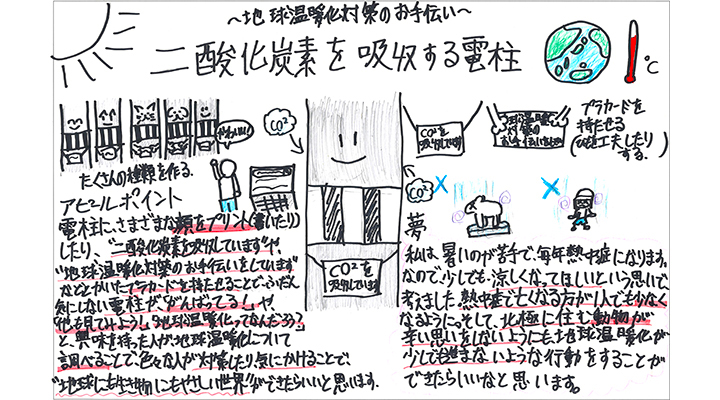 ～地球温暖化対策のお手伝い～
二酸化炭素を吸収する電柱
℃
かわいい!
CO²
CO²を
吸収しています
地球温暖化
対策の
お手伝いをしています
プラカードを
持たせる
工夫したり
する。
たくさんの種類を作る。
アピールポイント
電柱に、さまざまな顔をプリント(書いたり)
したり、"二酸化炭素を吸収しています"や、
"地球温暖化対策のお手伝いをしています"
などとかいたプラカードを持たせることで、ふだん
気にしない電柱が「がんばってる!」や、
「他も見てみよう!」「地球温暖化ってなんだろう?」
と、興味を持った人が地球温暖化について
調べることで、色々な人が対策したり、気にかけることで、
"地球にも生き物にもやさしい世界"ができたらいいと思います。
CO²を
吸収しています
CO²
夢
私は、暑いのが苦手で、毎年熱中症になります。
なので、少しでも、涼しくなってほしいという思いで、
考えました。熱中症で亡くなる方が1人でも少なく
なるように。そして、北極に住む動物が
辛い思いをしないようにも、地球温暖化が
少しでも進まないような行動をすることが
できたらいいなと思います。